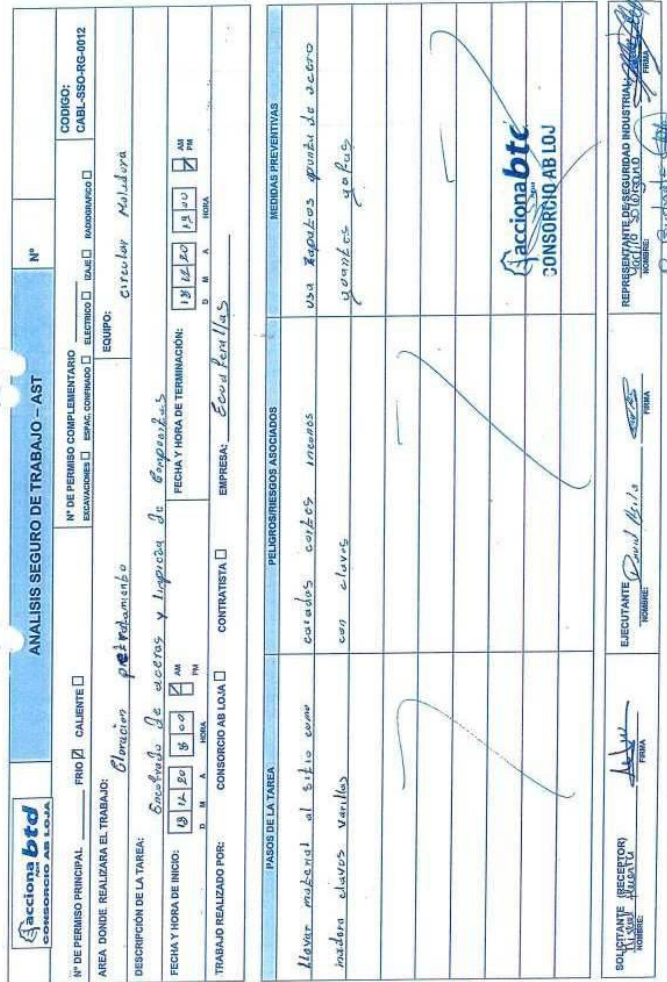 accionabtd
CONSORCIO AB LOJA
ANALISIS SEGURO DE TRABAJO – AST
Nº
Nº DE PERMISO PRINCIPAL
FRIO ☑ CALIENTE ☐
Nº DE PERMISO COMPLEMENTARIO
EXCAVACIONES ☐ ESPAC. CONFINADO ☐ ELECTRICO ☐ IZAJE ☐ RADIOGRAFICO ☐
CODIGO:
CABL-SSO-RG-0012
AREA DONDE REALIZARA EL TRABAJO:
Cloracion
EQUIPO:
circular Moladora
DESCRIPCIÓN DE LA TAREA:
Encofrado de aceras y limpieza de
FECHA Y HORA DE INICIO:
18 12 20 8 00 ☑ AM
☐ PM
D M A HORA
FECHA Y HORA DE TERMINACIÓN:
18 12 20 AM
PM
D M A HORA
TRABAJO REALIZADO POR: CONSORCIO AB LOJA ☐ CONTRATISTA ☐ EMPRESA:
PASOS DE LA TAREA
PELIGROS/RIESGOS ASOCIADOS
MEDIDAS PREVENTIVAS
llevar material al sitio como
madera clavos varillas
caidas cortes
con clavos
usa zapatos punta de acero
guantes gafas
accionabtd
CONSORCIO AB LOJ
SOLICITANTE (RECEPTOR)
NOMBRE:
FIRMA
EJECUTANTE
David
NOMBRE:
FIRMA
REPRESENTANTE DE SEGURIDAD INDUSTRIAL
NOMBRE:
FIRMA